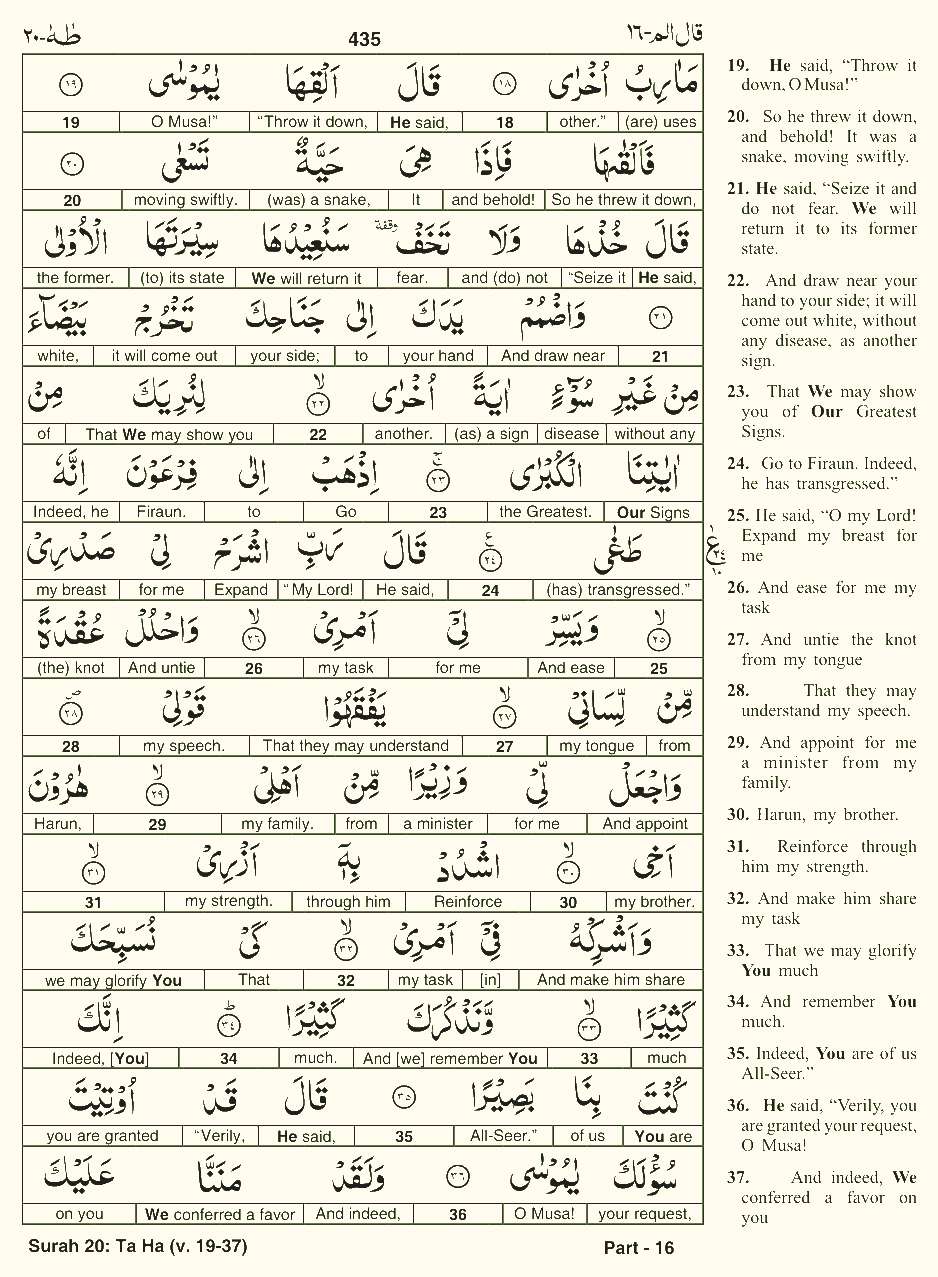 قال الم-١٦
435
طٰهٰ-٢٠
مَاٰرِبُ اُخْرٰى ١٨ قَالَ اَلْقِهَا يٰمُوْسٰى ١٩
(are) uses other.” 18 He said, “Throw it down, O Musa!” 19
فَاَلْقٰىهَا فَاِذَا هِىَ حَيَّةٌ تَسْعٰى ٢٠
So he threw it down, and behold! It (was) a snake, moving swiftly. 20
قَالَ خُذْهَا وَلَا تَخَفْ وقفة سَنُعِيْدُهَا سِيْرَتَهَا الْاُوْلٰى
He said, “Seize it and (do) not fear. We will return it (to) its state the former.
٢١ وَاضْمُمْ يَدَكَ اِلٰى جَنَاحِكَ تَخْرُجْ بَيْضَآءَ
21 And draw near your hand to your side; it will come out white,
مِنْ غَيْرِ سُوْٓءٍ اٰيَةً اُخْرٰى ٢٢ لا لِنُرِيَكَ مِنْ
without any disease (as) a sign another. 22 That We may show you of
اٰيٰتِنَا الْكُبْرٰى ٢٣ ج اِذْهَبْ اِلٰى فِرْعَوْنَ اِنَّهٗ
Our Signs the Greatest. 23 Go to Firaun. Indeed, he
طَغٰى ٢٤ ع قَالَ رَبِّ اشْرَحْ لِىْ صَدْرِىْ
(has) transgressed.” 24 He said, “My Lord! Expand for me my breast
٢٥ لا وَيَسِّرْ لِىْٓ اَمْرِىْ ٢٦ لا وَاحْلُلْ عُقْدَةً
25 And ease for me my task 26 And untie (the) knot
مِّنْ لِّسَانِىْ ٢٧ لا يَفْقَهُوْا قَوْلِىْ ٢٨ ص
from my tongue 27 That they may understand my speech. 28
وَاجْعَلْ لِّىْ وَزِيْرًا مِّنْ اَهْلِىْ ٢٩ لا هٰرُوْنَ
And appoint for me a minister from my family. 29 Harun,
اَخِى ٣٠ لا اشْدُدْ بِهٖٓ اَزْرِىْ ٣١ لا
my brother. 30 Reinforce through him my strength. 31
وَاَشْرِكْهُ فِىْٓ اَمْرِىْ ٣٢ لا كَىْ نُسَبِّحَكَ
And make him share [in] my task 32 That we may glorify You
كَثِيْرًا ٣٣ لا وَّنَذْكُرَكَ كَثِيْرًا ٣٤ ط اِنَّكَ
much 33 And [we] remember You much. 34 Indeed, [You]
كُنْتَ بِنَا بَصِيْرًا ٣٥ قَالَ قَدْ اُوْتِيْتَ
You are of us All-Seer.” 35 He said, “Verily, you are granted
سُؤْلَكَ يٰمُوْسٰى ٣٦ وَلَقَدْ مَنَنَّا عَلَيْكَ
your request, O Musa! 36 And indeed, We conferred a favor on you
19. He said, “Throw it
down, O Musa!”
20. So he threw it down,
and behold! It was a
snake, moving swiftly.
21. He said, “Seize it and
do not fear. We will
return it to its former
state.
22. And draw near your
hand to your side; it will
come out white, without
any disease, as another
sign.
23. That We may show
you of Our Greatest
Signs.
24. Go to Firaun. Indeed,
he has transgressed.”
25. He said, “O my Lord!
Expand my breast for
me
26. And ease for me my
task
27. And untie the knot
from my tongue
28. That they may
understand my speech.
29. And appoint for me
a minister from my
family.
30. Harun, my brother.
31. Reinforce through
him my strength.
32. And make him share
my task
33. That we may glorify
You much
34. And remember You
much.
35. Indeed, You are of us
All-Seer.”
36. He said, “Verily, you
are granted your request,
O Musa!
37. And indeed, We
conferred a favor on
you
Surah 20: Ta Ha (v. 19-37)
Part - 16